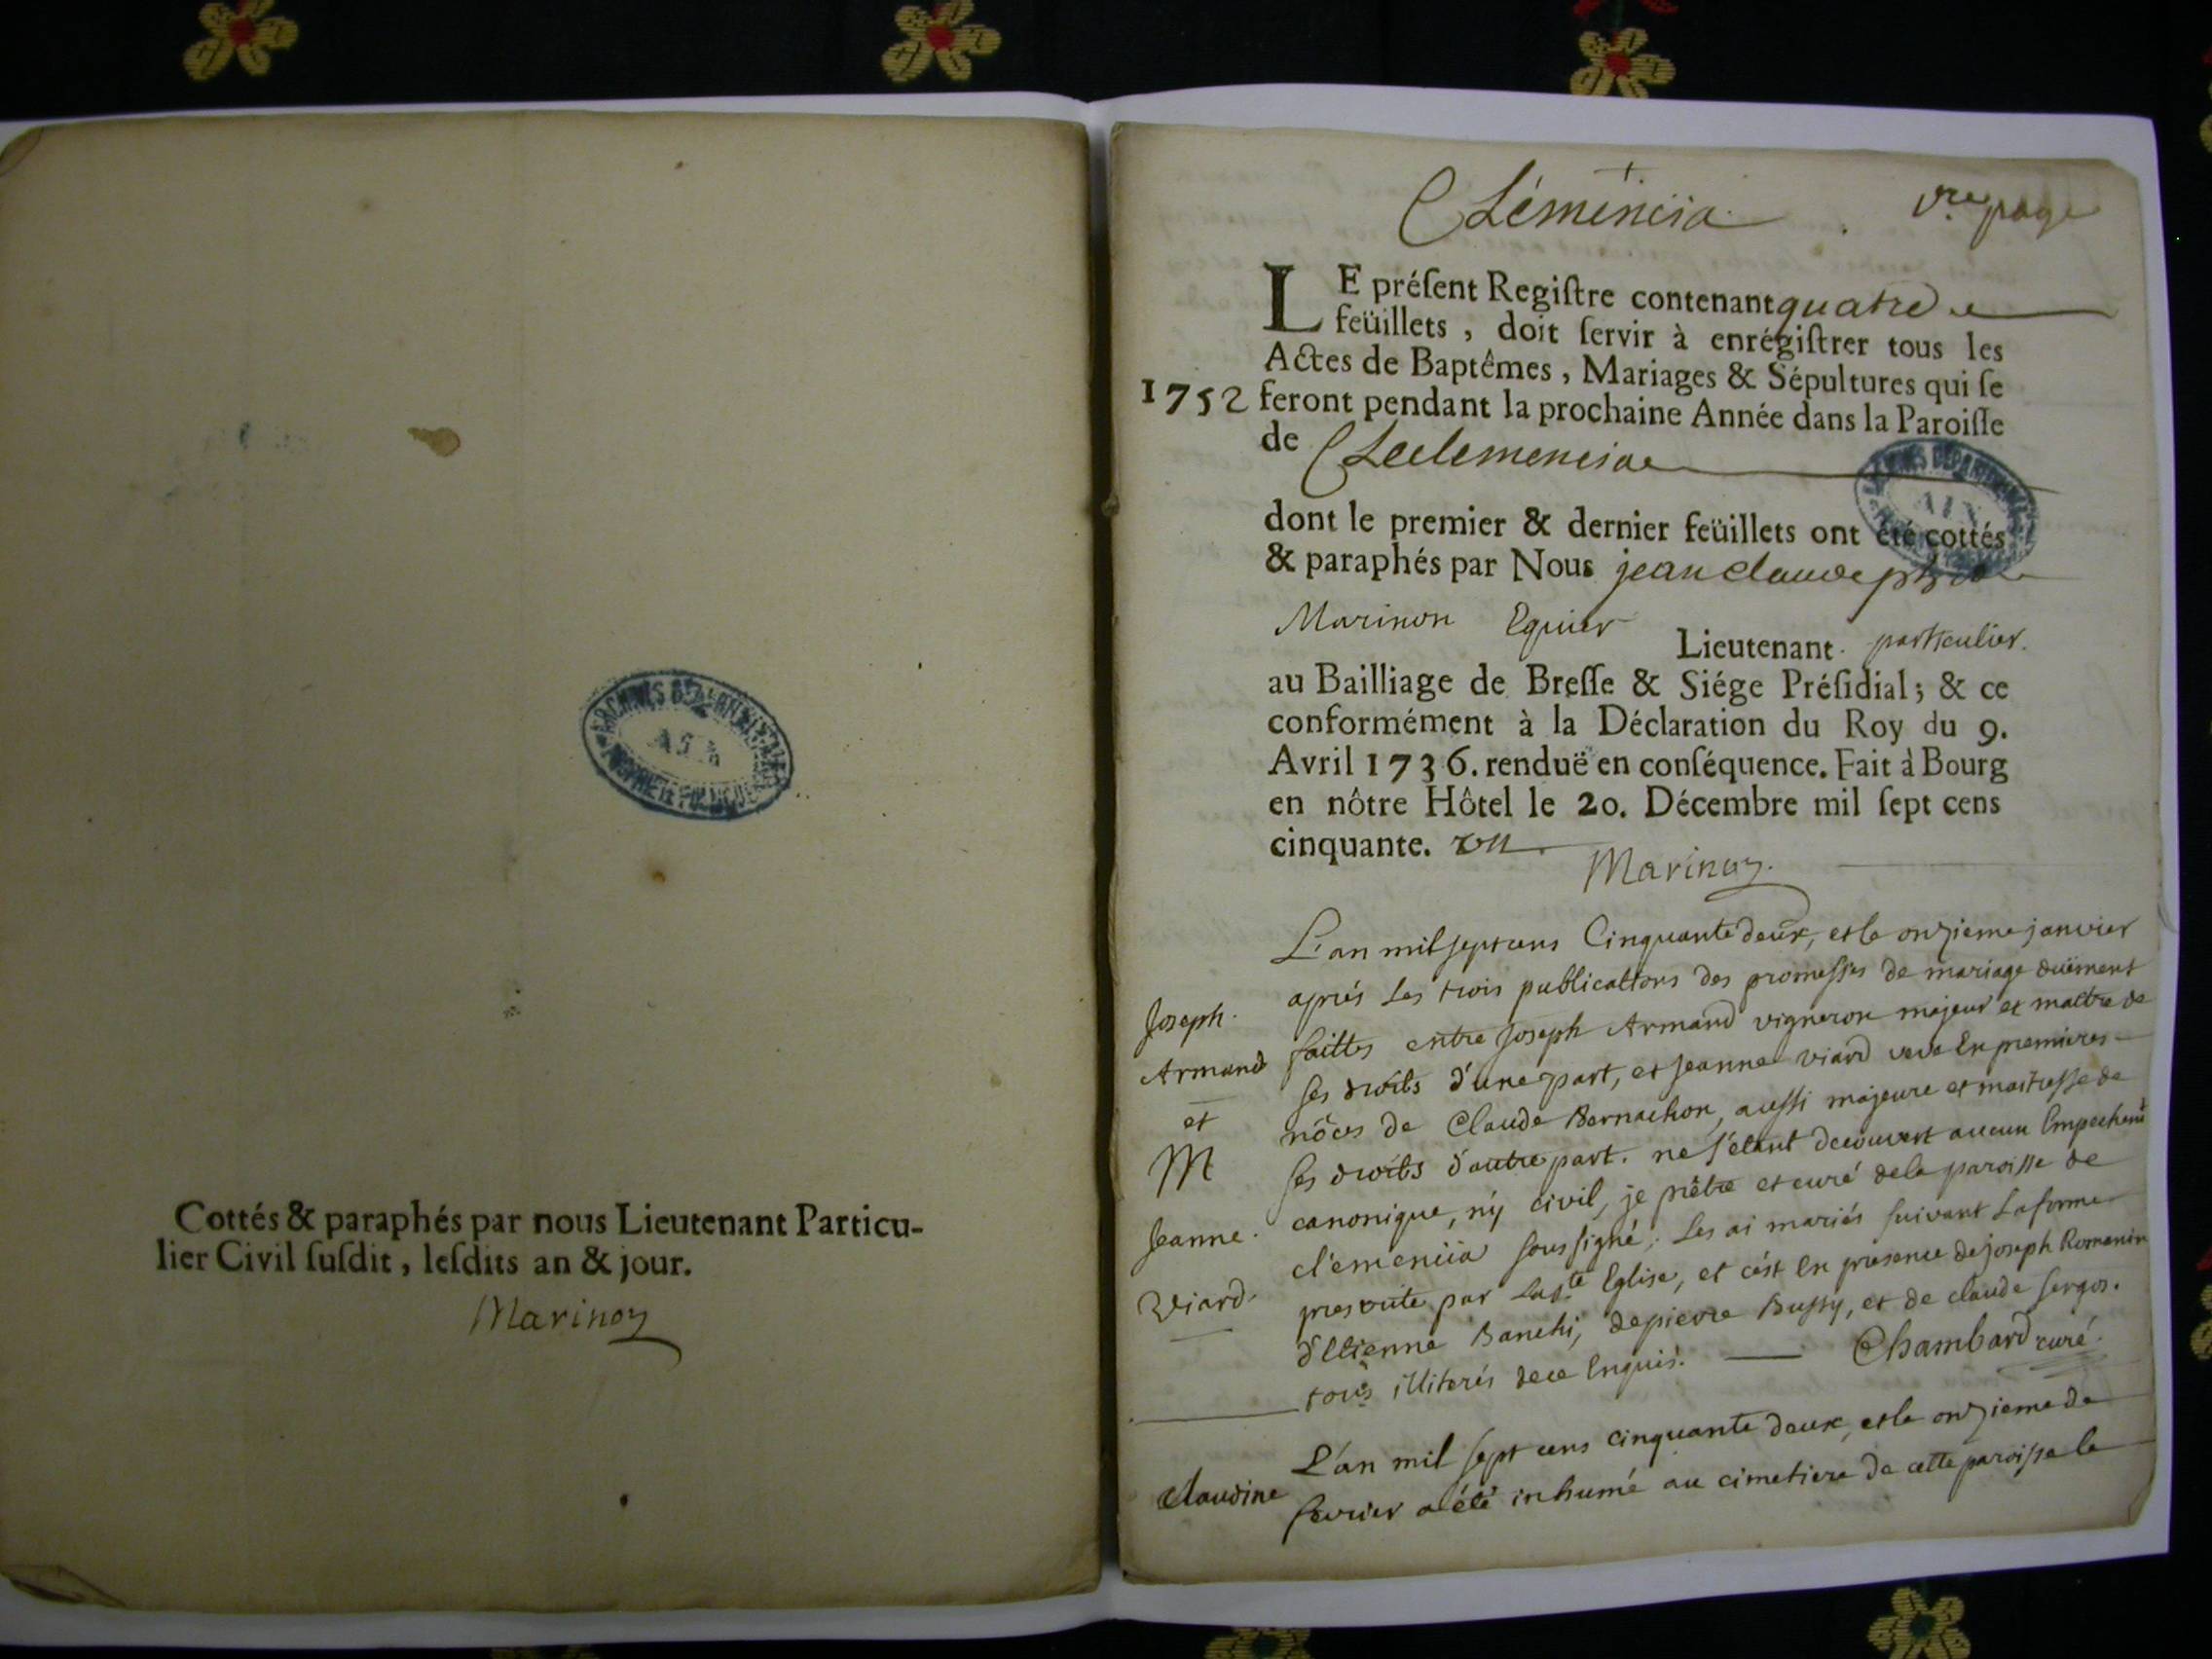 ARCHIVES DE L'AIN
PROPRIETE PUBLIQUE
Cottés & paraphés par nous Lieutenant Particu-
lier Civil ſuſdit, leſdits an & jour.
Marinon
Clémencia.
1re page
LE préſent Regiſtre contenant quatre
feüillets, doit ſervir à enrégiſtrer tous les
Actes de Baptêmes, Mariages & Sépultures qui ſe
1752 feront pendant la prochaine Année dans la Paroiſſe
de
dont le premier & dernier feüillets ont été cottés
& paraphés par Nous jean claude
Marinon Equier Lieutenant particulier.
au Bailliage de Breſſe & Siége Préſidial; & ce
conformément à la Déclaration du Roy du 9.
Avril 1736. renduë en conſéquence. Fait à Bourg
en nôtre Hôtel le 20. Décembre mil ſept cens
cinquante. un.
Marinon.
Joseph.
Armand
et
M
Jeanne.
Viard.
L'an mil sept cens Cinquante deux, et le onzieme janvier
aprés les trois publications des promesses de mariage duëment
faittes entre Joseph Armand vigneron majeur et maitre de
ses droits d'une part, et Jeanne viard veve En premieres
nôces de Claude Bernachon, aussi majeure et maitresse de
ses droits d'autre part. ne s'etant decouvert aucun Empechemt
canonique, ny civil, je prêtre et curé de la paroisse de
clémenciia soussigné, les ai mariés suivant la forme
prescrite par la ste Eglise, et c'est En presence de joseph Romanin
d'Etienne Banchi, de pierre Bussy, et de claude sergos.
tous illiterés de ce Enquis. Chambard curé.
Claudine
L'an mil sept cens cinquante deux, et le onzieme de
fevrier a été inhumé au cimetiere de cette paroisse le